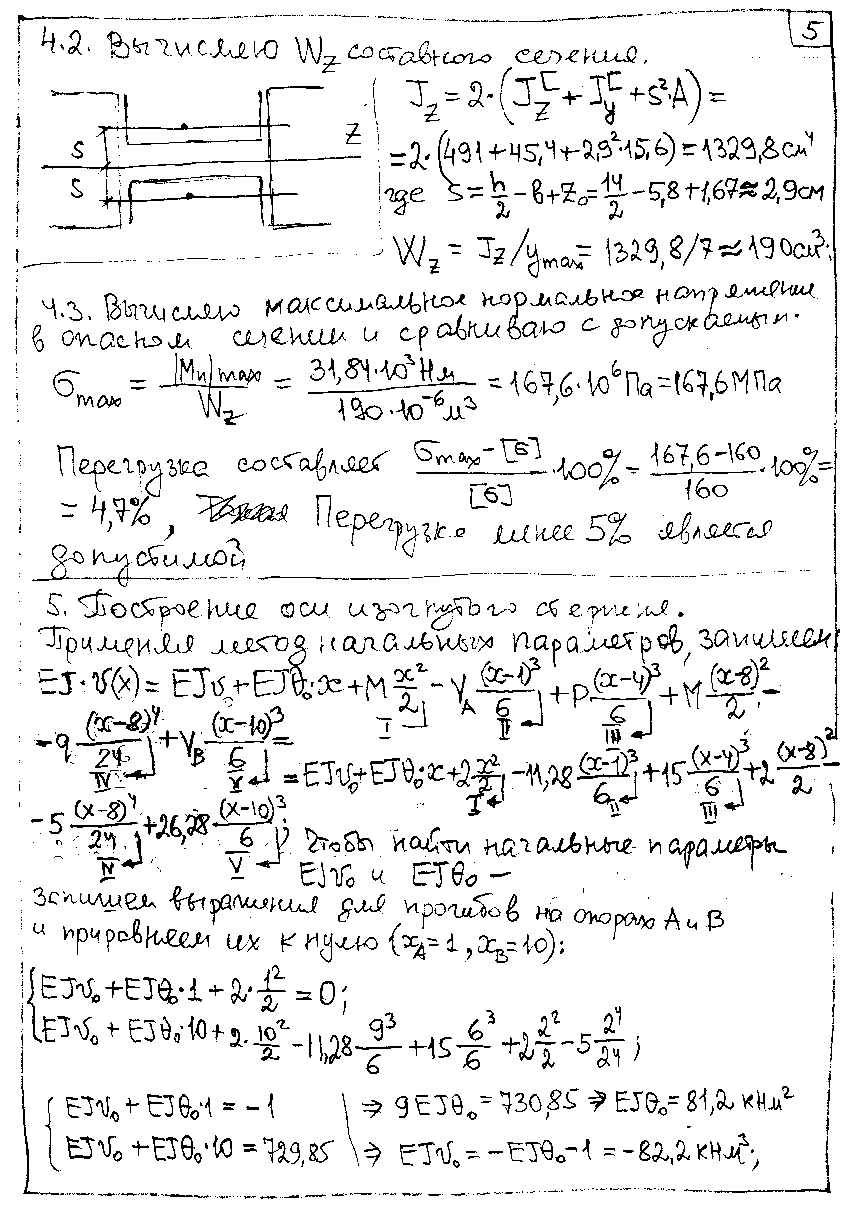 5
4.2. Вычисляю Wz составного сечения.
S
S
Z
Jz = 2·(Jz[ + Jy[ + S²·A) =
= 2·(491+45,4+2,9²·15,6) = 1329,8 см⁴
где S = h/2 - b + z₀ = 14/2 - 5,8 + 1,67 ≈ 2,9см
Wz = Jz/ymax = 1329,8/7 ≈ 190см³;
4.3. Вычисляю максимальное нормальное напряжение
в опасном сечении и сравниваю с допускаемым.
σmax = |Mи|max/Wz = 31,84·10³Нм/190·10⁻⁶м³ = 167,6·10⁶Па = 167,6МПа
Перегрузка составляет (σmax - [σ])/[σ] ·100% = (167,6-160)/160 ·100% =
= 4,7%, Перегрузка менее 5% является
допустимой
5. Построение оси изогнутого стержня.
Применяя метод начальных параметров, запишем
EJ·v(x) = EJv₀ + EJθ₀·x + M x²/2 I - VA (x-1)³/6 II + P (x-4)³/6 III + M (x-8)²/2 -
- q (x-8)⁴/24 IV + VB (x-10)³/6 V =
= EJv₀ + EJθ₀·x + 2·x²/2 I - 11,28 (x-1)³/6 II + 15 (x-4)³/6 III + 2 (x-8)²/2 -
- 5 (x-8)⁴/24 IV + 26,28 (x-10)³/6 V ; Чтобы найти начальные параметры
EJv₀ и EJθ₀ –
запишем выражения для прогибов на опорах A и B
и приравняем их к нулю (xA = 1, xB = 10):
{EJv₀ + EJθ₀·1 + 2·1²/2 = 0;
EJv₀ + EJθ₀·10 + 2·10²/2 - 11,28 9³/6 + 15 6³/6 + 2 2²/2 - 5 2⁴/24 ;
{EJv₀ + EJθ₀·1 = -1 ⇒ 9EJθ₀ = 730,85 ⇒ EJθ₀ = 81,2 кНм²
EJv₀ + EJθ₀·10 = 729,85 ⇒ EJv₀ = -EJθ₀ - 1 = -82,2 кНм³;